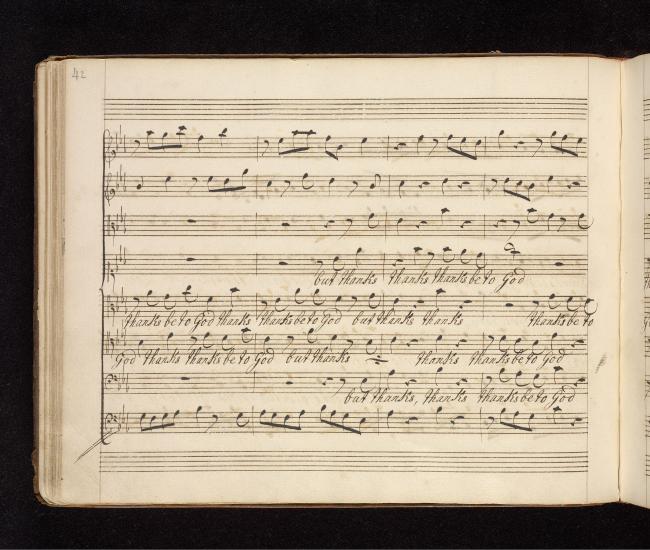 42
but thanks thanks thanks be to God
thanks be to God thanks thanks be to God but thanks thanks thanks be to
God thanks thanks be to God but thanks thanks thanks be to God
but thanks, thanks thanks be to God